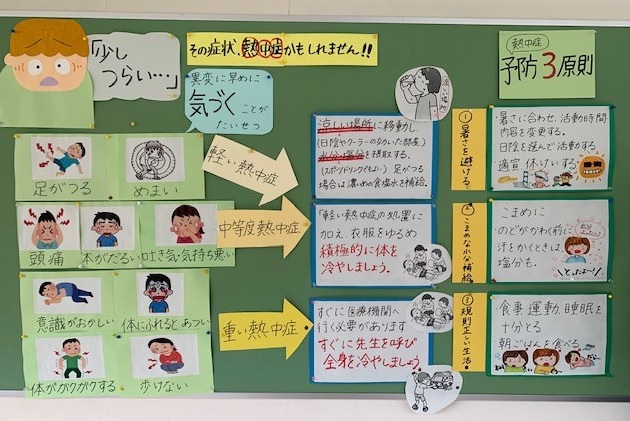 「少し
つらい…」
その症状、熱中症かもしれません!!
異変に早めに
気づくことが
たいせつ
足がつる
めまい
軽い熱中症
頭痛
体がだるい
吐き気・気持ち悪い
中等度熱中症
意識がおかしい
体にふれるとあつい
体がガクガクする
歩けない
重い熱中症
涼しい場所に移動し、
(日陰やクーラーのきいた部屋)
水分と塩分を摂取する。
(スポーツドリンクでもよい) 足がつる
場合は濃いめの食塩水を補給。
「軽い熱中症の処置に
加え、衣服をゆるめ
積極的に体を
冷やしましょう。
すぐに医療機関へ
行く必要があります
すぐに先生を呼び
全身を冷やしましょう
熱中症
予防3原則
① 暑さを避ける。
暑さに合わせ、活動時間
内容を変更する。
日陰を選んで活動する。
適宜休けいする。
② こまめな水分補給
こまめに
のどがかわく前に
汗をかくときは
塩分も。
③ 規則正しい生活。
食事、運動、睡眠を
十分とる
朝ごはんを食べる